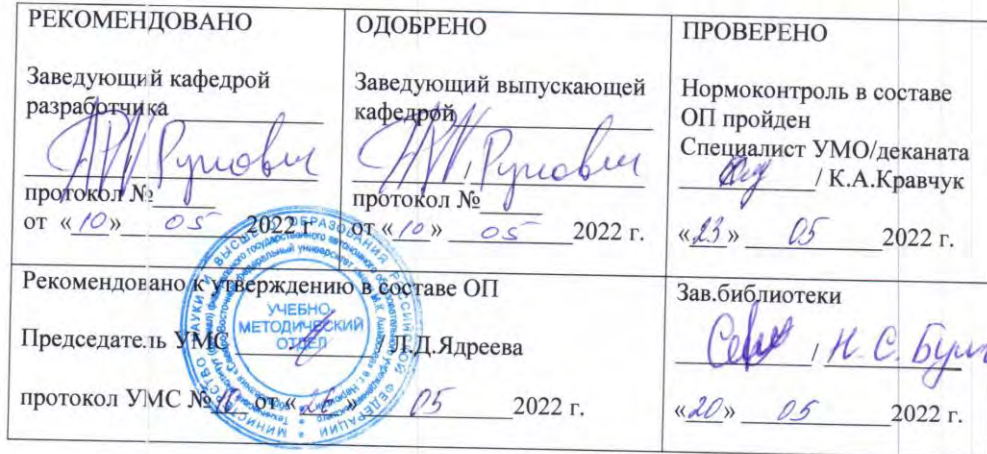 РЕКОМЕНДОВАНО
Заведующий кафедрой
разработчика
протокол №
от «10» 05 2022 г
ОДОБРЕНО
Заведующий выпускающей
кафедрой
/
протокол №
от «10» 05 2022 г.
ПРОВЕРЕНО
Нормоконтроль в составе
ОП пройден
Специалист УМО/деканата
/ К.А.Кравчук
«23» 05 2022 г.
Рекомендовано к утверждению в составе ОП
Председатель УМС Л.Д.Ядреева
протокол УМС № от « » 05 2022 г.
УЧЕБНО-
МЕТОДИЧЕСКИЙ
ОТДЕЛ
Зав.библиотеки
/ Н.С.
«20» 05 2022 г.